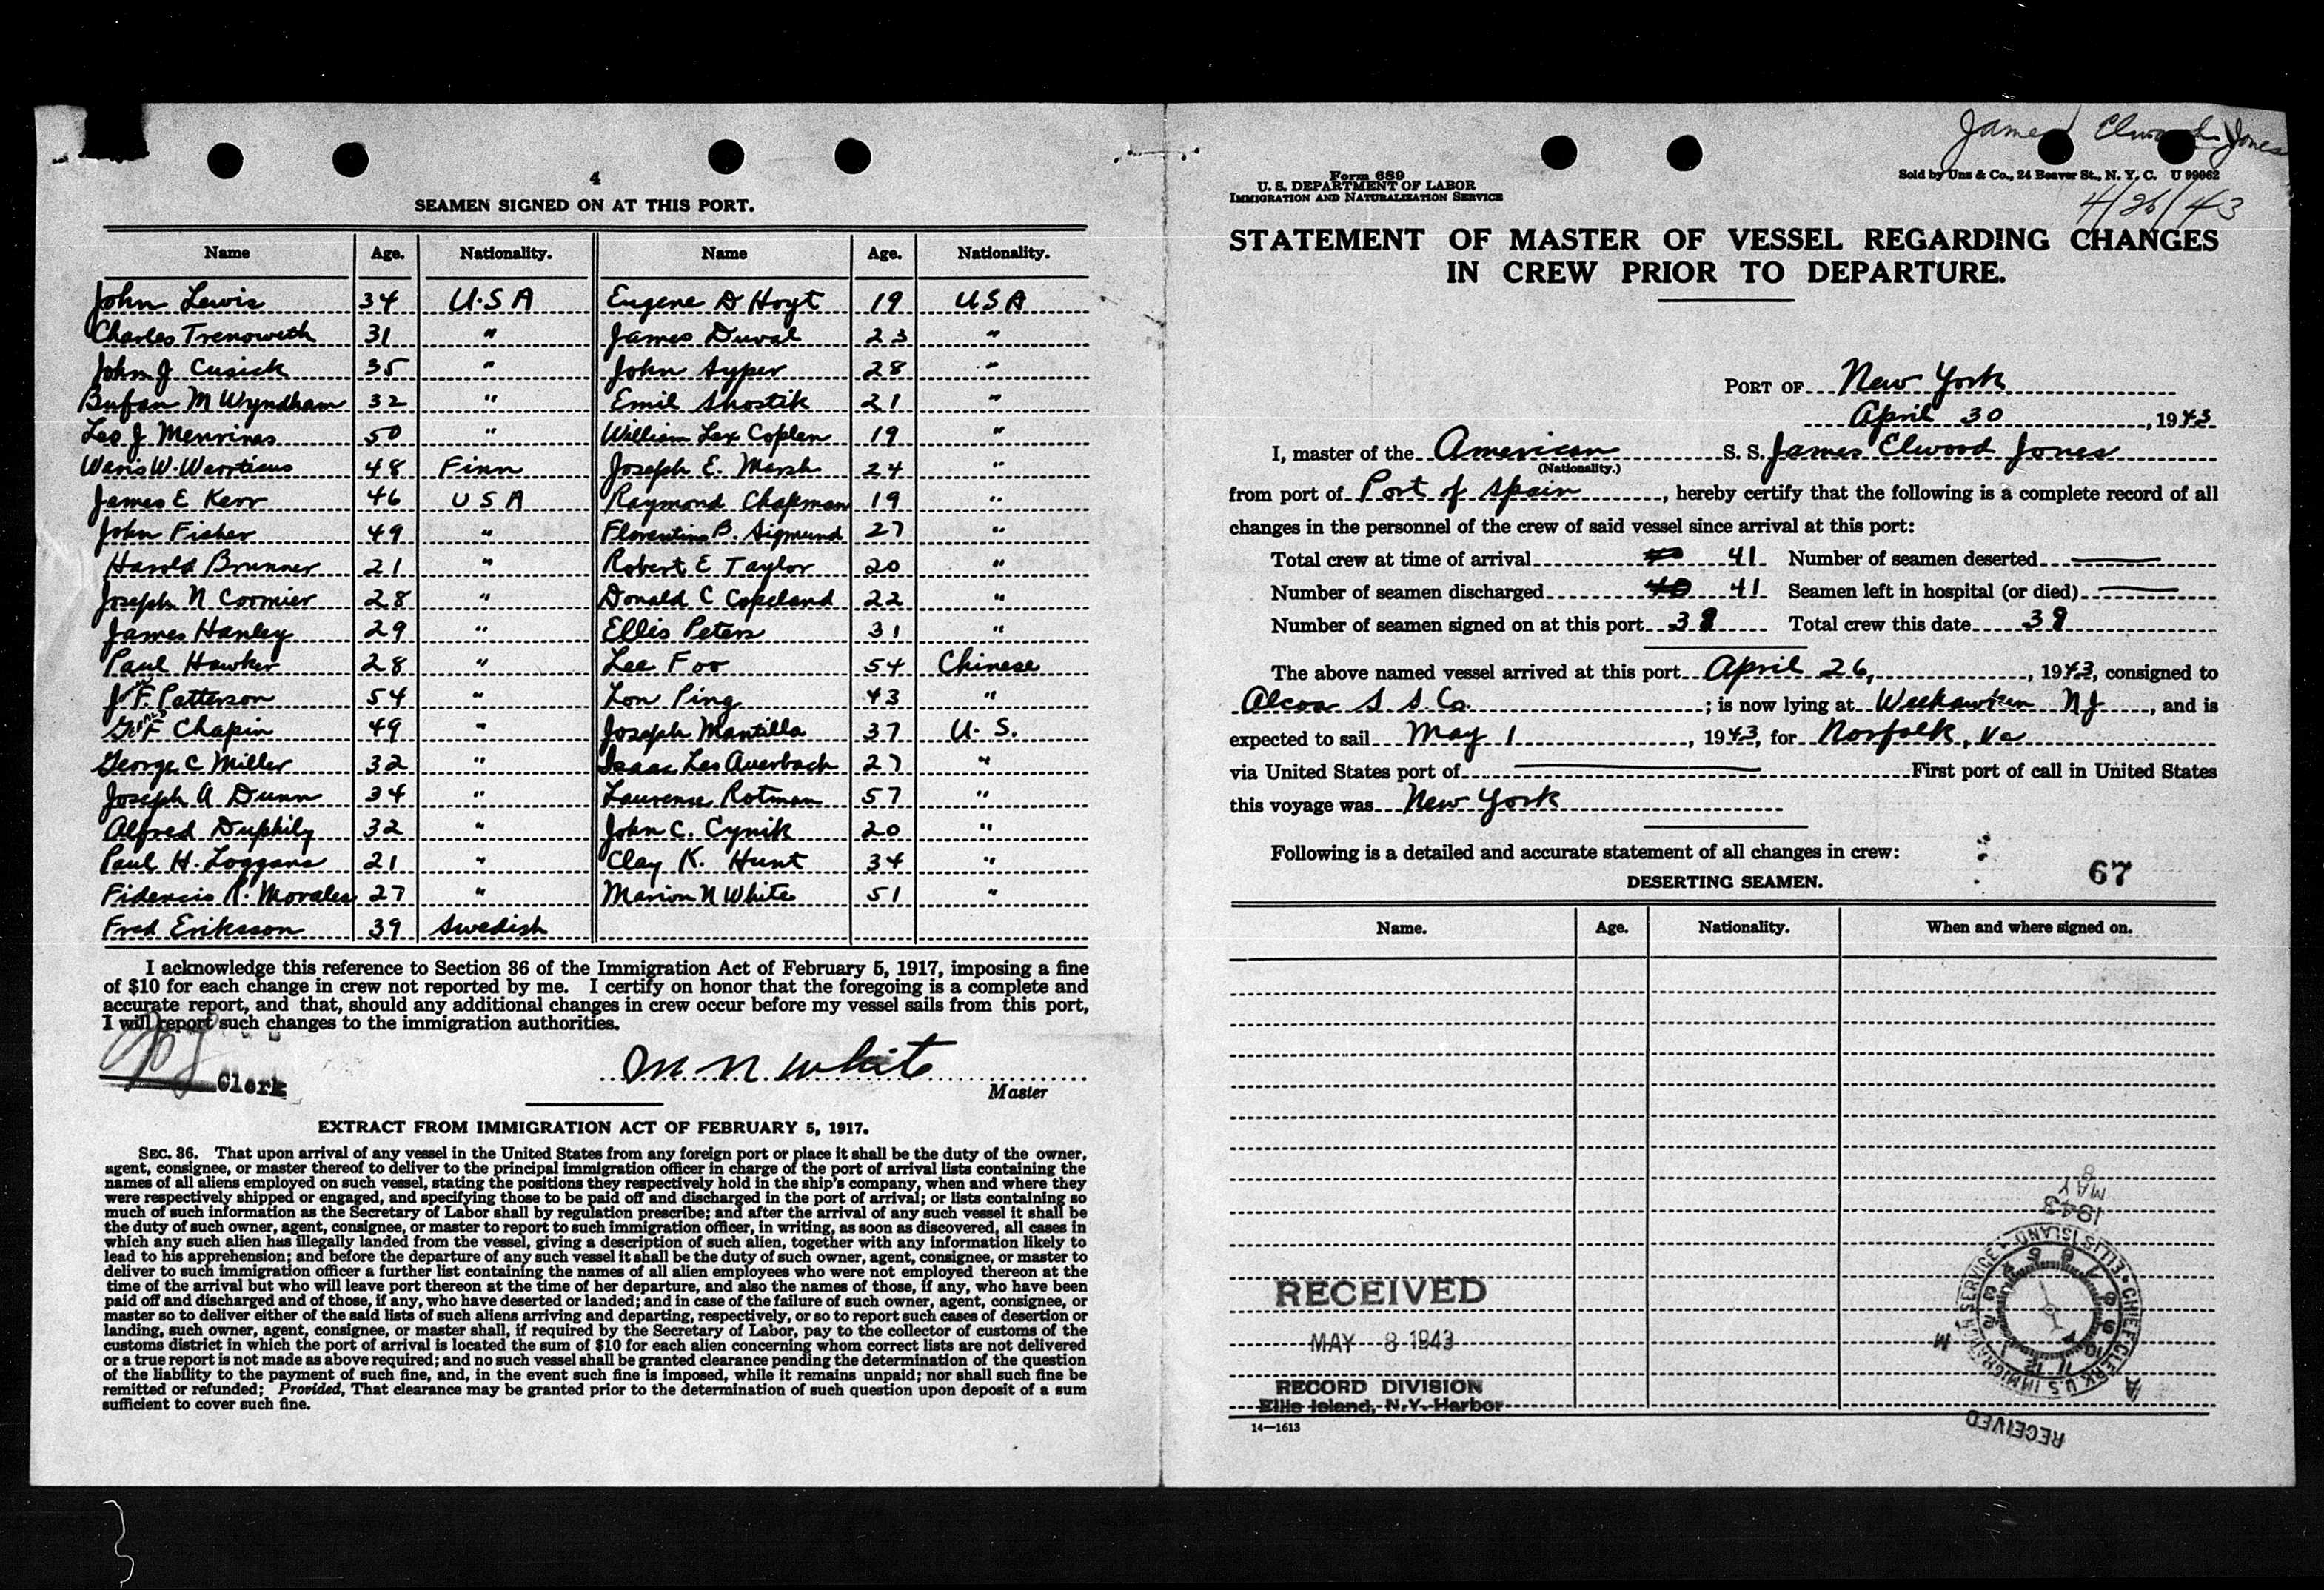 4
SEAMEN SIGNED ON AT THIS PORT.
Name Age. Nationality. Name Age. Nationality.
John Lewis 34 U.S A Eugene D Hoyt 19 U S A
Charles Trenoweth 31 " James Duval 23 "
John J Cusick 35 " John Syper 28 "
Bufan M Wyndham 32 " Emil Shostik 21 "
Leo J 50 " William Lex Coplen 19 "
48 Finn Joseph E. Marsh 24 "
James E Kerr 46 U S A Raymond Chapman 19 "
John Fisher 49 " Florentino B. Sigmund 27 "
Harold Brunner 21 " Robert E Taylor 20 "
Joseph N Cormier 28 " Donald C Copeland 22 "
James Hanley 29 " Ellis Peters 31 "
Paul Hawker 28 " Lee Foo 54 Chinese
J F. Patterson 54 " Lon Ping 43 "
F Chapin 49 " Joseph Mantilla 37 U. S.
George C Miller 32 " Isaac Leo Auerbach 27 "
Joseph A Dunn 34 " Laurence Rotman 57 "
Alfred Duphily 32 " John C. Cynik 20 "
Paul H. Loggans 21 " Clay K. Hunt 34 "
Fidencio R. Morales 27 " Marion N White 51 "
Fred Eriksson 39 Swedish
I acknowledge this reference to Section 36 of the Immigration Act of February 5, 1917, imposing a fine
of $10 for each change in crew not reported by me. I certify on honor that the foregoing is a complete and
accurate report, and that, should any additional changes in crew occur before my vessel sails from this port,
I will report such changes to the immigration authorities.
Clerk
M N. White
Master
EXTRACT FROM IMMIGRATION ACT OF FEBRUARY 5, 1917.
SEC. 36. That upon arrival of any vessel in the United States from any foreign port or place it shall be the duty of the owner,
agent, consignee, or master thereof to deliver to the principal immigration officer in charge of the port of arrival lists containing the
names of all aliens employed on such vessel, stating the positions they respectively hold in the ship's company, when and where they
were respectively shipped or engaged, and specifying those to be paid off and discharged in the port of arrival; or lists containing so
much of such information as the Secretary of Labor shall by regulation prescribe; and after the arrival of any such vessel it shall be
the duty of such owner, agent, consignee, or master to report to such immigration officer, in writing, as soon as discovered, all cases in
which any such alien has illegally landed from the vessel, giving a description of such alien, together with any information likely to
lead to his apprehension; and before the departure of any such vessel it shall be the duty of such owner, agent, consignee, or master to
deliver to such immigration officer a further list containing the names of all alien employees who were not employed thereon at the
time of the arrival but who will leave port thereon at the time of her departure, and also the names of those, if any, who have been
paid off and discharged and of those, if any, who have deserted or landed; and in case of the failure of such owner, agent, consignee, or
master so to deliver either of the said lists of such aliens arriving and departing, respectively, or so to report such cases of desertion or
landing, such owner, agent, consignee, or master shall, if required by the Secretary of Labor, pay to the collector of customs of the
customs district in which the port of arrival is located the sum of $10 for each alien concerning whom correct lists are not delivered
or a true report is not made as above required; and no such vessel shall be granted clearance pending the determination of the question
of the liability to the payment of such fine, and, in the event such fine is imposed, while it remains unpaid; nor shall such fine be
remitted or refunded; Provided, That clearance may be granted prior to the determination of such question upon deposit of a sum
sufficient to cover such fine.
James Elwood Jones
Form 689
U. S. DEPARTMENT OF LABOR
IMMIGRATION AND NATURALIZATION SERVICE
Sold by Unz & Co., 24 Beaver St., N. Y. C. U 99062
4/26/43
STATEMENT OF MASTER OF VESSEL REGARDING CHANGES
IN CREW PRIOR TO DEPARTURE.
PORT OF New York
April 30, 1943
I, master of the American S. S. James Elwood Jones
(Nationality.)
from port of Port of Spain, hereby certify that the following is a complete record of all
changes in the personnel of the crew of said vessel since arrival at this port:
Total crew at time of arrival 40 41 Number of seamen deserted
Number of seamen discharged 40 41 Seamen left in hospital (or died)
Number of seamen signed on at this port 39 Total crew this date 39
The above named vessel arrived at this port April 26, 1943, consigned to
Alcoa S S. Co. ; is now lying at Weehawken NJ, and is
expected to sail May 1, 1943, for Norfolk, Va
via United States port of First port of call in United States
this voyage was New York
Following is a detailed and accurate statement of all changes in crew:
67
DESERTING SEAMEN.
Name. Age. Nationality. When and where signed on.
RECEIVED
MAY 8 1943
RECORD DIVISION
Ellis Island, N.Y. Harbor
14—1613
1943
MAY
8
CHIEF CLERK U.S. IMMIGRATION SERVICE ELLIS ISLAND
A M
RECEIVED